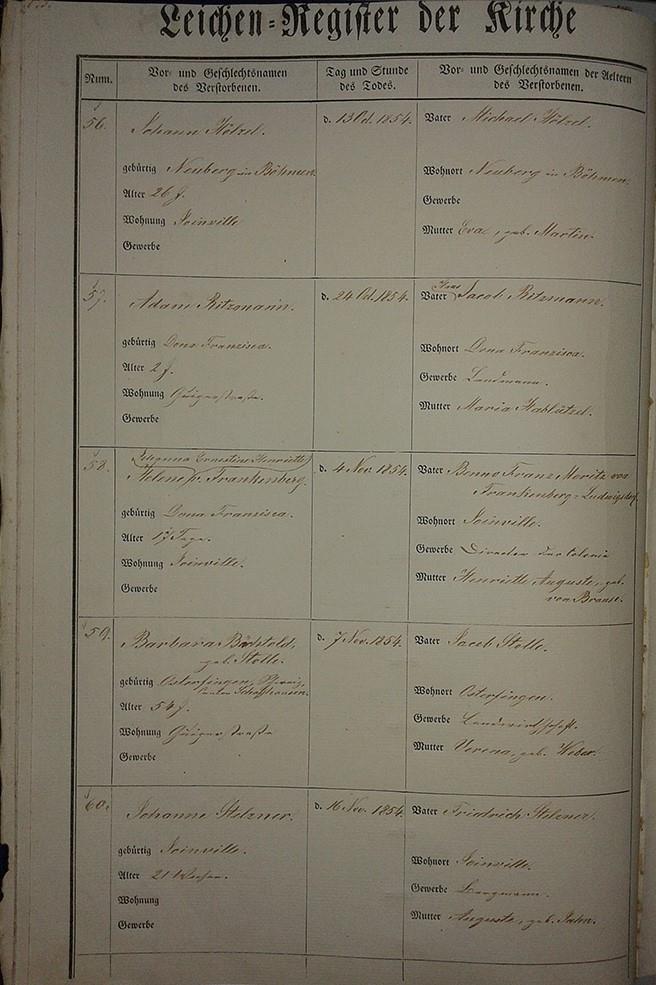 Leichen-Register der Kirche
Num.
Vor- und Geschlechtsnamen
des Verstorbenen.
Tag und Stunde
des Todes.
Vor- und Geschlechtsnamen der Aeltern
des Verstorbenen.
56.
Johann Hölzel.
gebürtig Neuberg in Böhmen.
Alter 26 J.
Wohnung Joinville
Gewerbe
d. 13 Oct. 1854.
Vater Michael Hölzel.
Wohnort Neuberg in Böhmen.
Gewerbe
Mutter Eva, geb. Martin.
57.
Adam Ritzmann.
gebürtig Dona Franzisca.
Alter 2 J.
Wohnung
Gewerbe
d. 24 Oct. 1854.
Hans
Vater Jacob Ritzmann.
Wohnort Dona Franzisca.
Gewerbe Landmann.
Mutter Maria Hablützel.
58.
Ernestine Henriette
Helene v. Frankenberg.
gebürtig Dona Franzisca.
Alter 17 Tage.
Wohnung Joinville.
Gewerbe
d. 4 Nov. 1854.
Vater Benno Franz Moritz von
Frankenberg-Ludwigsdorf.
Wohnort Joinville.
Gewerbe Director der Colonie
Mutter Henriette Auguste, geb.
von Brause.
59.
Barbara Bächtold,
geb. Stolle.
gebürtig Osterfingen, Schweiz,
Canton Schaffhausen.
Alter 54 J.
Wohnung
Gewerbe
d. 7 Nov. 1854.
Vater Jacob Stolle.
Wohnort Osterfingen.
Gewerbe Landwirthschaft.
Mutter Verena, geb. Weber.
60.
Johanne Stelzner.
gebürtig Joinville.
Alter 21 Wochen.
Wohnung
Gewerbe
d. 16 Nov. 1854.
Vater Friedrich Stelzner.
Wohnort Joinville.
Gewerbe Bergmann.
Mutter Auguste, geb. Jahn.